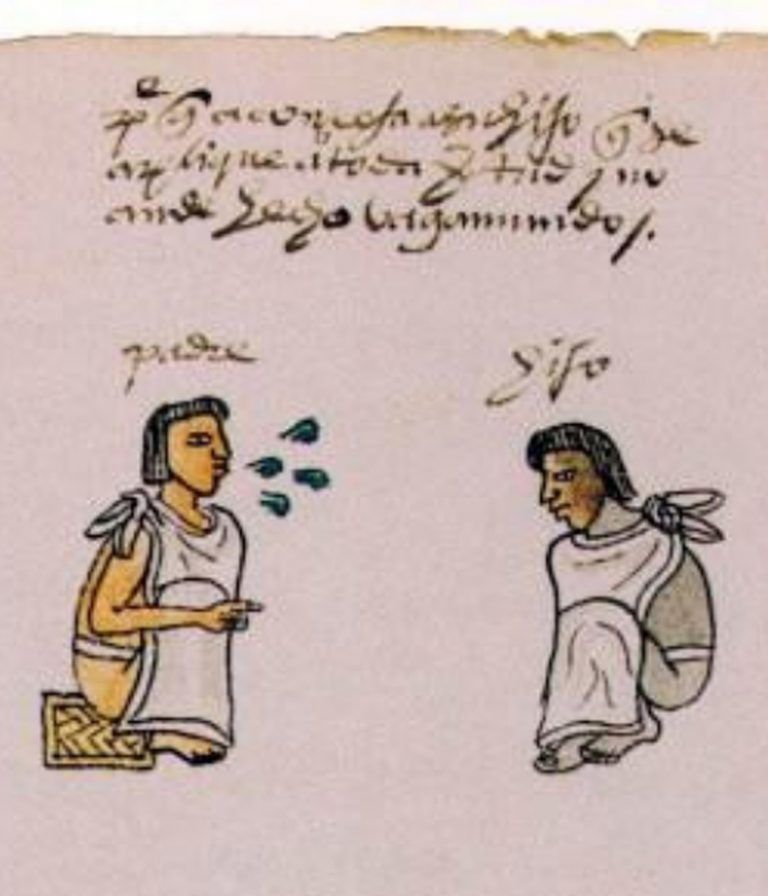 pe q aconseja a su hijo q se
aplique a toda vtud y no
ande hecho vagamundo/.
padre hijo